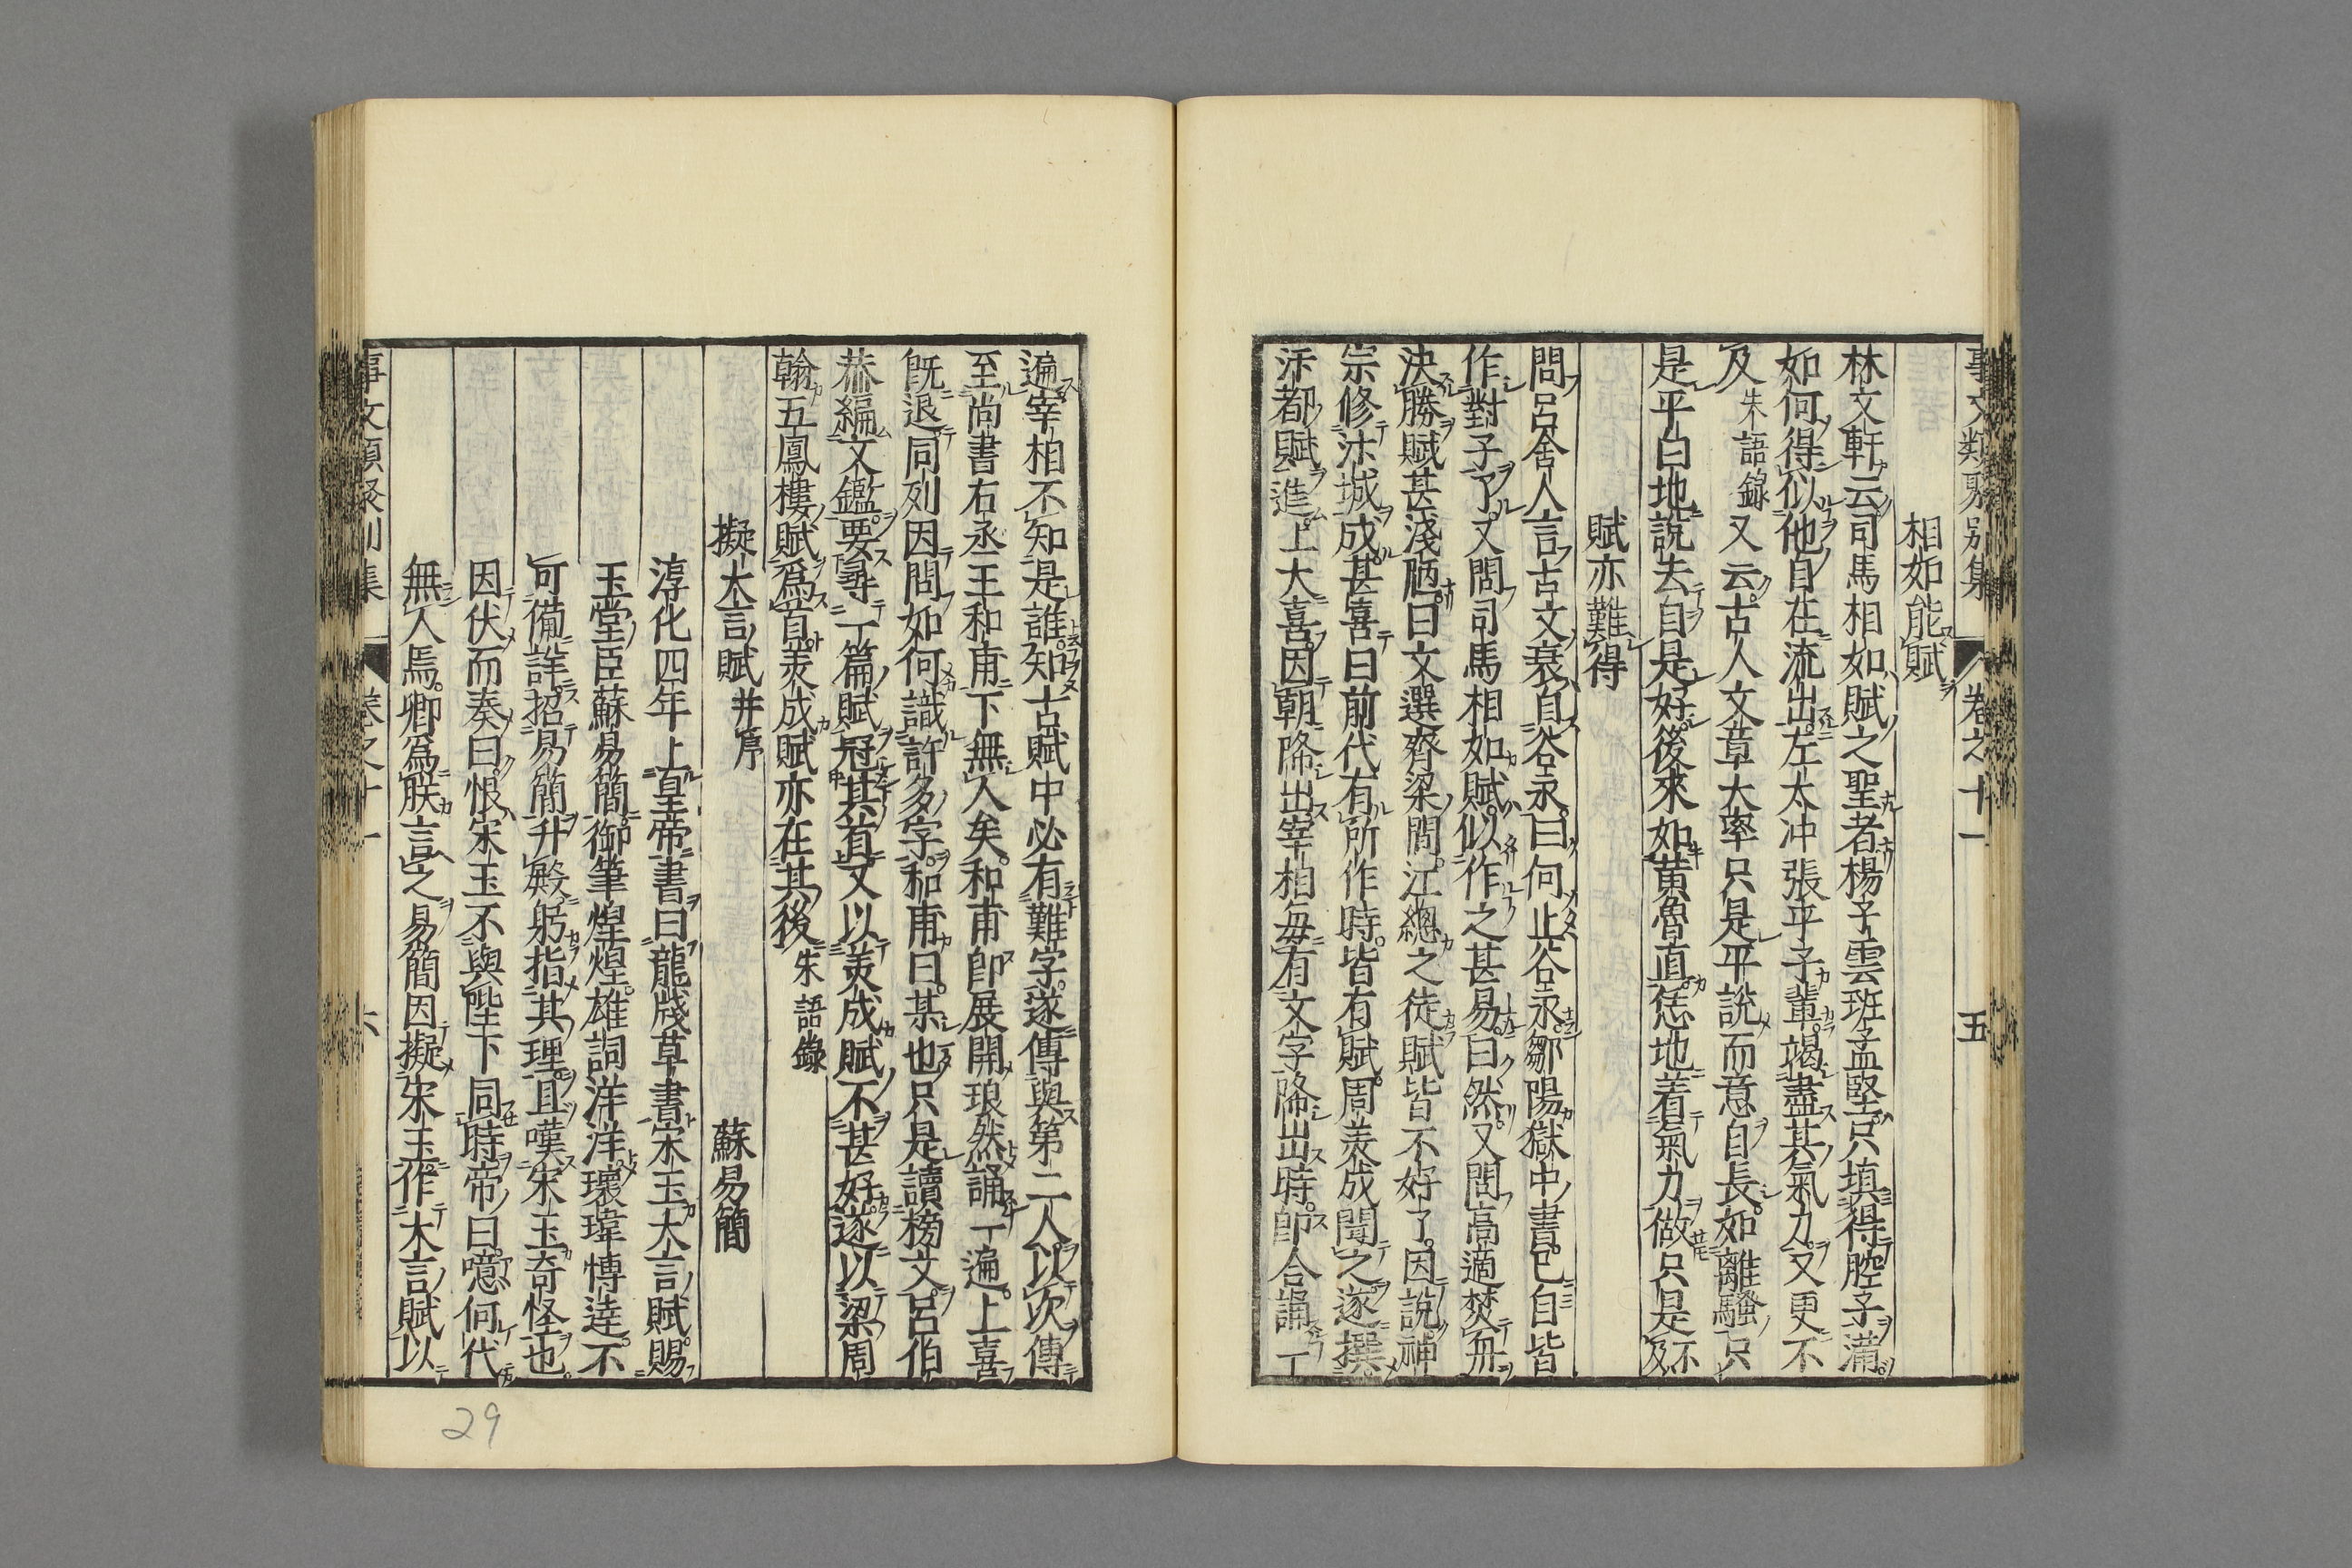 事文類聚別集 卷之十一 五
相如能賦
林文軒云司馬相如賦之聖者楊子雲班孟堅只填得腔子滿
如何得似他自在流出左太冲張平子輩竭盡其氣力又更不
及朱語錄又云古人文章大率只是平說而意自長如離騷只
是平白地說去自是好後來如黃魯直恁地着氣力做只是不及
賦亦難得
問呂舍人言古文衰自谷永曰何止谷永鄒陽獄中書已自皆
作對子了又問司馬相如賦似作之甚易曰然又問高適焚舟
決勝賦甚淺陋曰文選齊梁間江總之徒賦皆不好了因說神
宗修汴城成甚喜曰前代有所作時皆有賦周美成聞之遂撰
汴都賦進上大喜因朝降出宰相每有文字降出時即合誦一
遍宰相不知是誰知古賦中必有難字遂傳與第二人以次傳
至尚書右丞王和甫下無人矣和甫即展開琅然誦一遍上喜
旣退同列因問如何識許多字和甫曰某也只是讀榜文呂伯
恭編文鑑要尋一篇賦冠其首又以美成賦不甚好遂以梁周
翰五鳳樓賦爲首美成賦亦在其後朱語錄
擬大言賦并序 蘇易簡
淳化四年上皇帝書曰龍牋草書宋玉大言賦賜
玉堂臣蘇易簡御筆煌煌雄詞洋洋瓌瑋博達不
可備詳招易簡升殿躬指其理且嘆宋玉奇怪也
因伏而奏曰恨宋玉不與陛下同時帝曰噫何代
無人焉卿爲朕言之易簡因擬宋玉作大言賦以
事文類聚別集 卷之十一 六
29